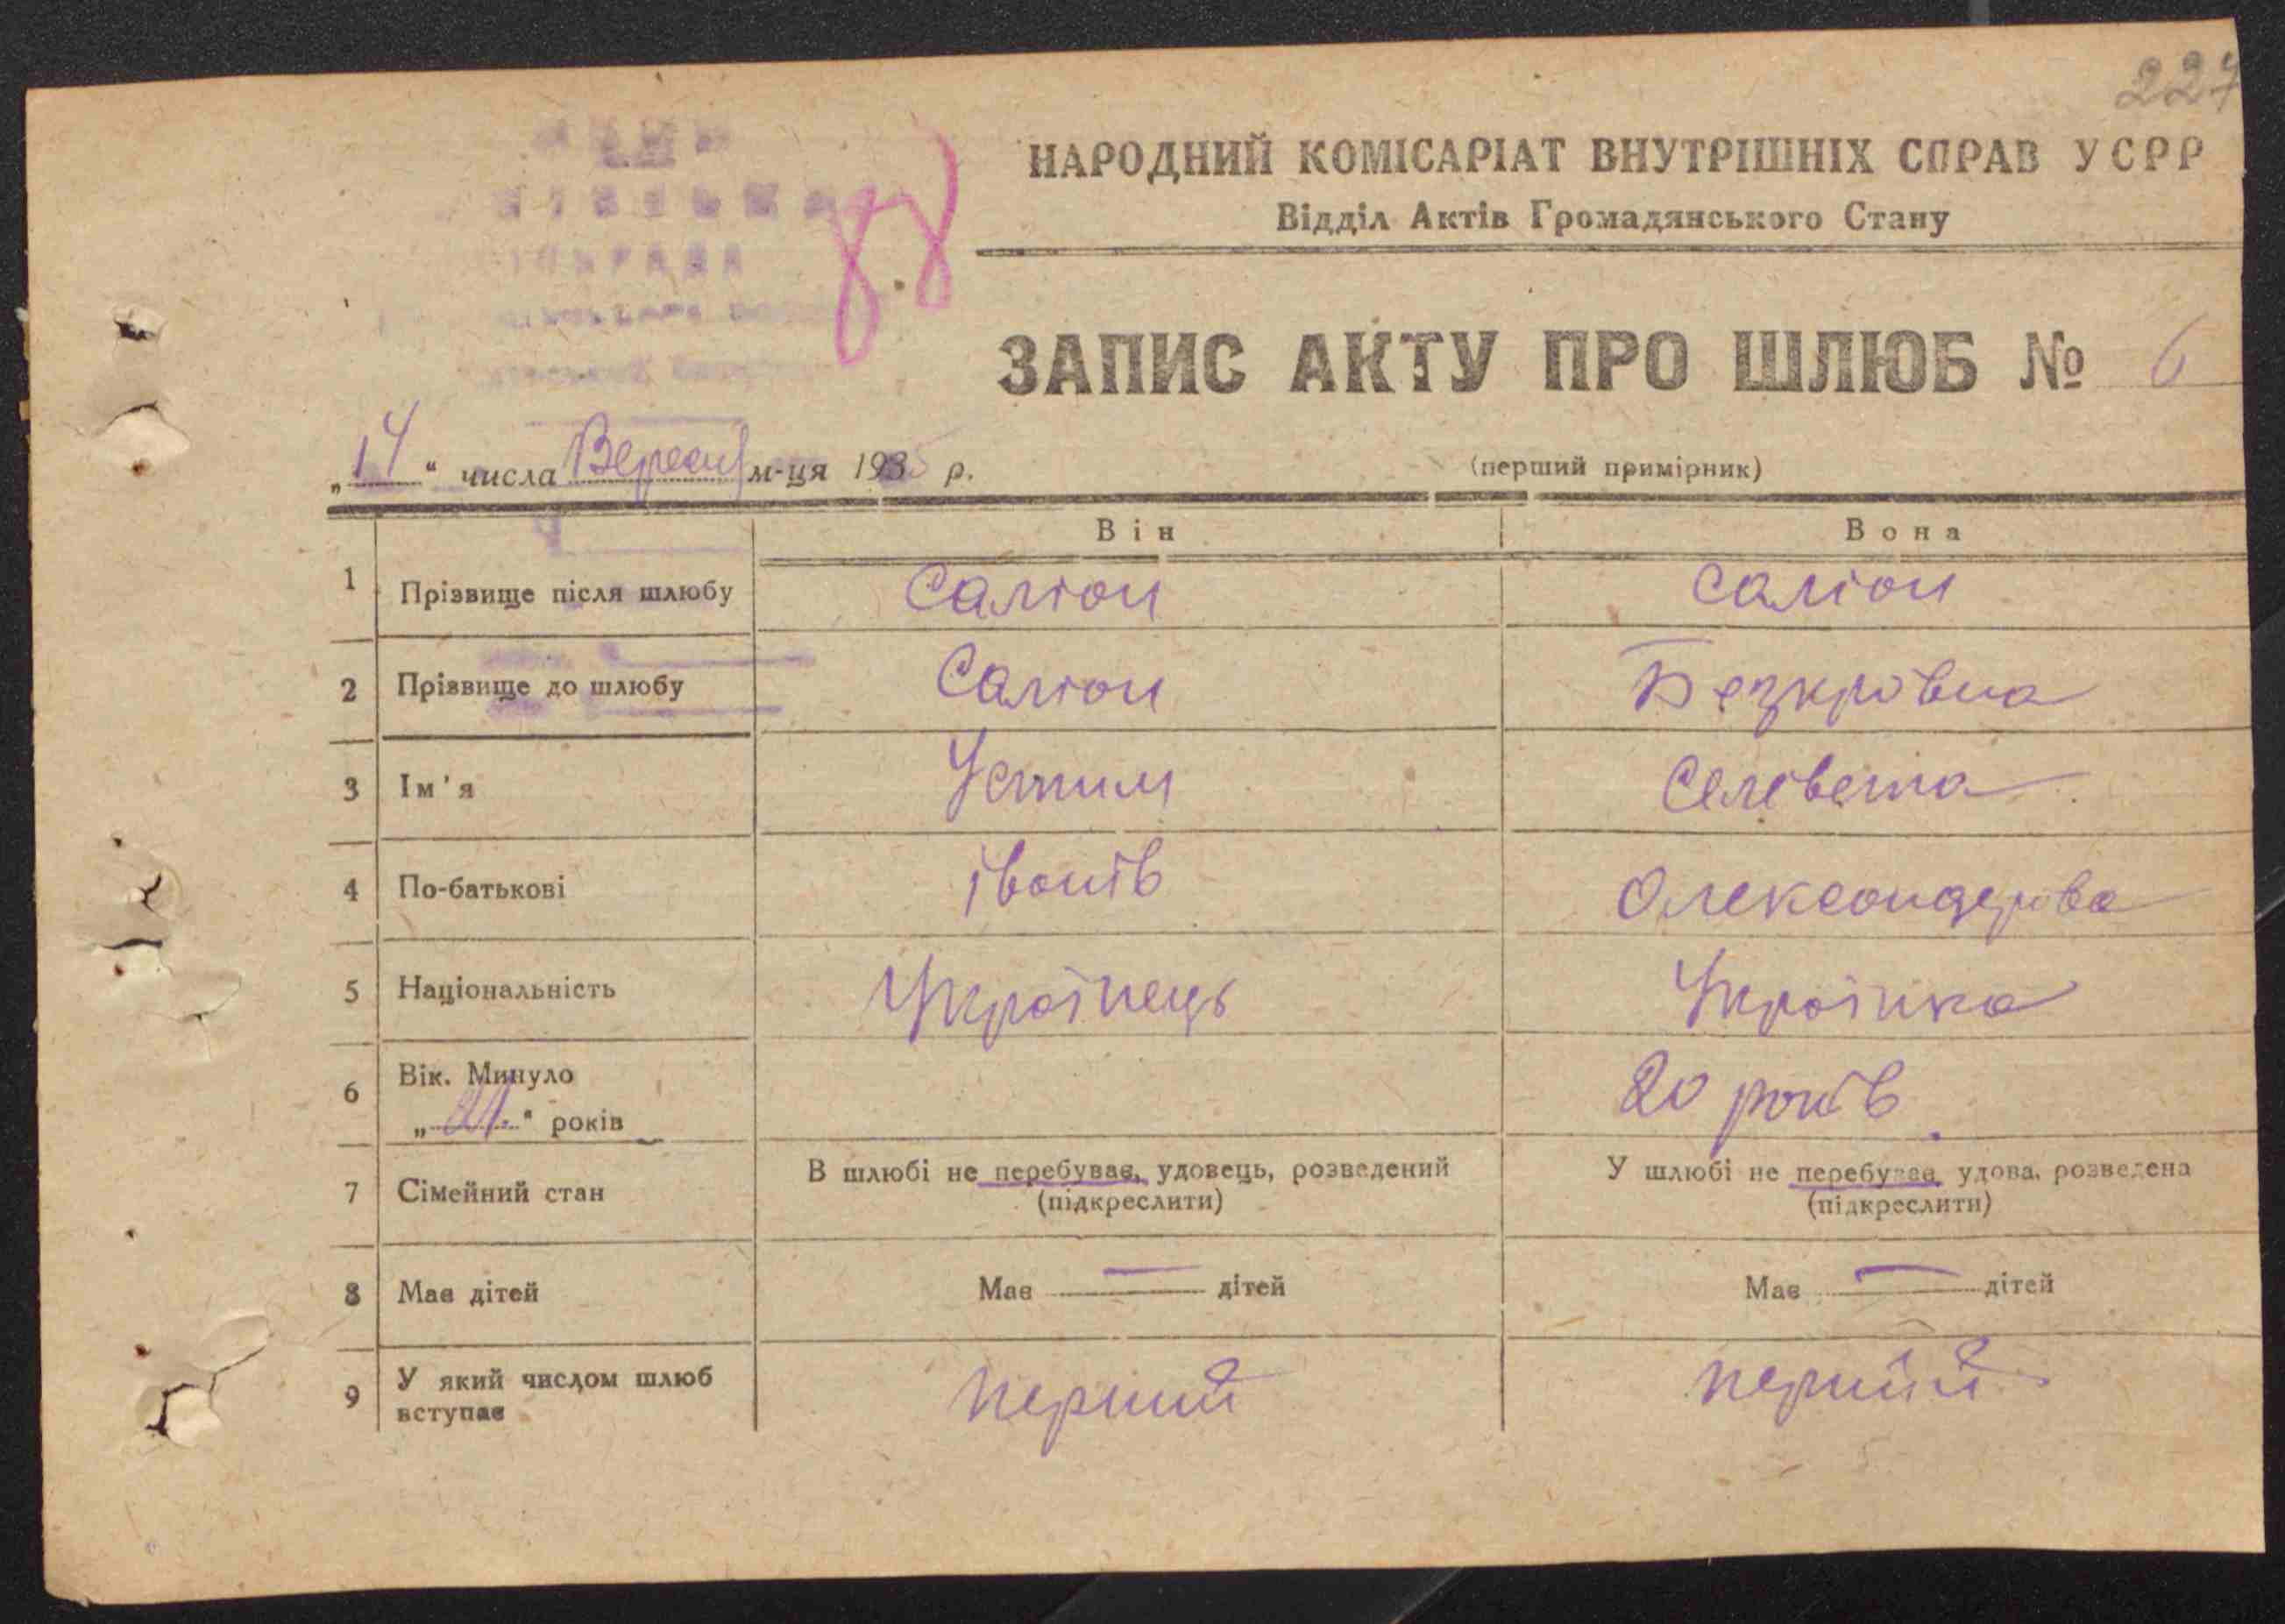 227
НАРОДНИЙ КОМІСАРІАТ ВНУТРІШНІХ СПРАВ УСРР
Відділ Актів Громадянського Стану
ЗАПИС АКТУ ПРО ШЛЮБ № 6
„14“ числа Вересня м-ця 1935 р.
(перший примірник)
Він Вона
1 Прізвище після шлюбу Саліон Саліон
2 Прізвище до шлюбу Саліон Безкрівна
3 Ім'я Устим Селівета
4 По-батькові Іванів Олександрова
5 Національність Українець Українка
6 Вік. Минуло
„21“ років 20 років
7 Сімейний стан В шлюбі не перебуває, удовець, розведений У шлюбі не перебуває, удова, розведена
(підкреслити) (підкреслити)
8 Має дітей Має — дітей Має — дітей
9 У який числом шлюб
вступає перший перший